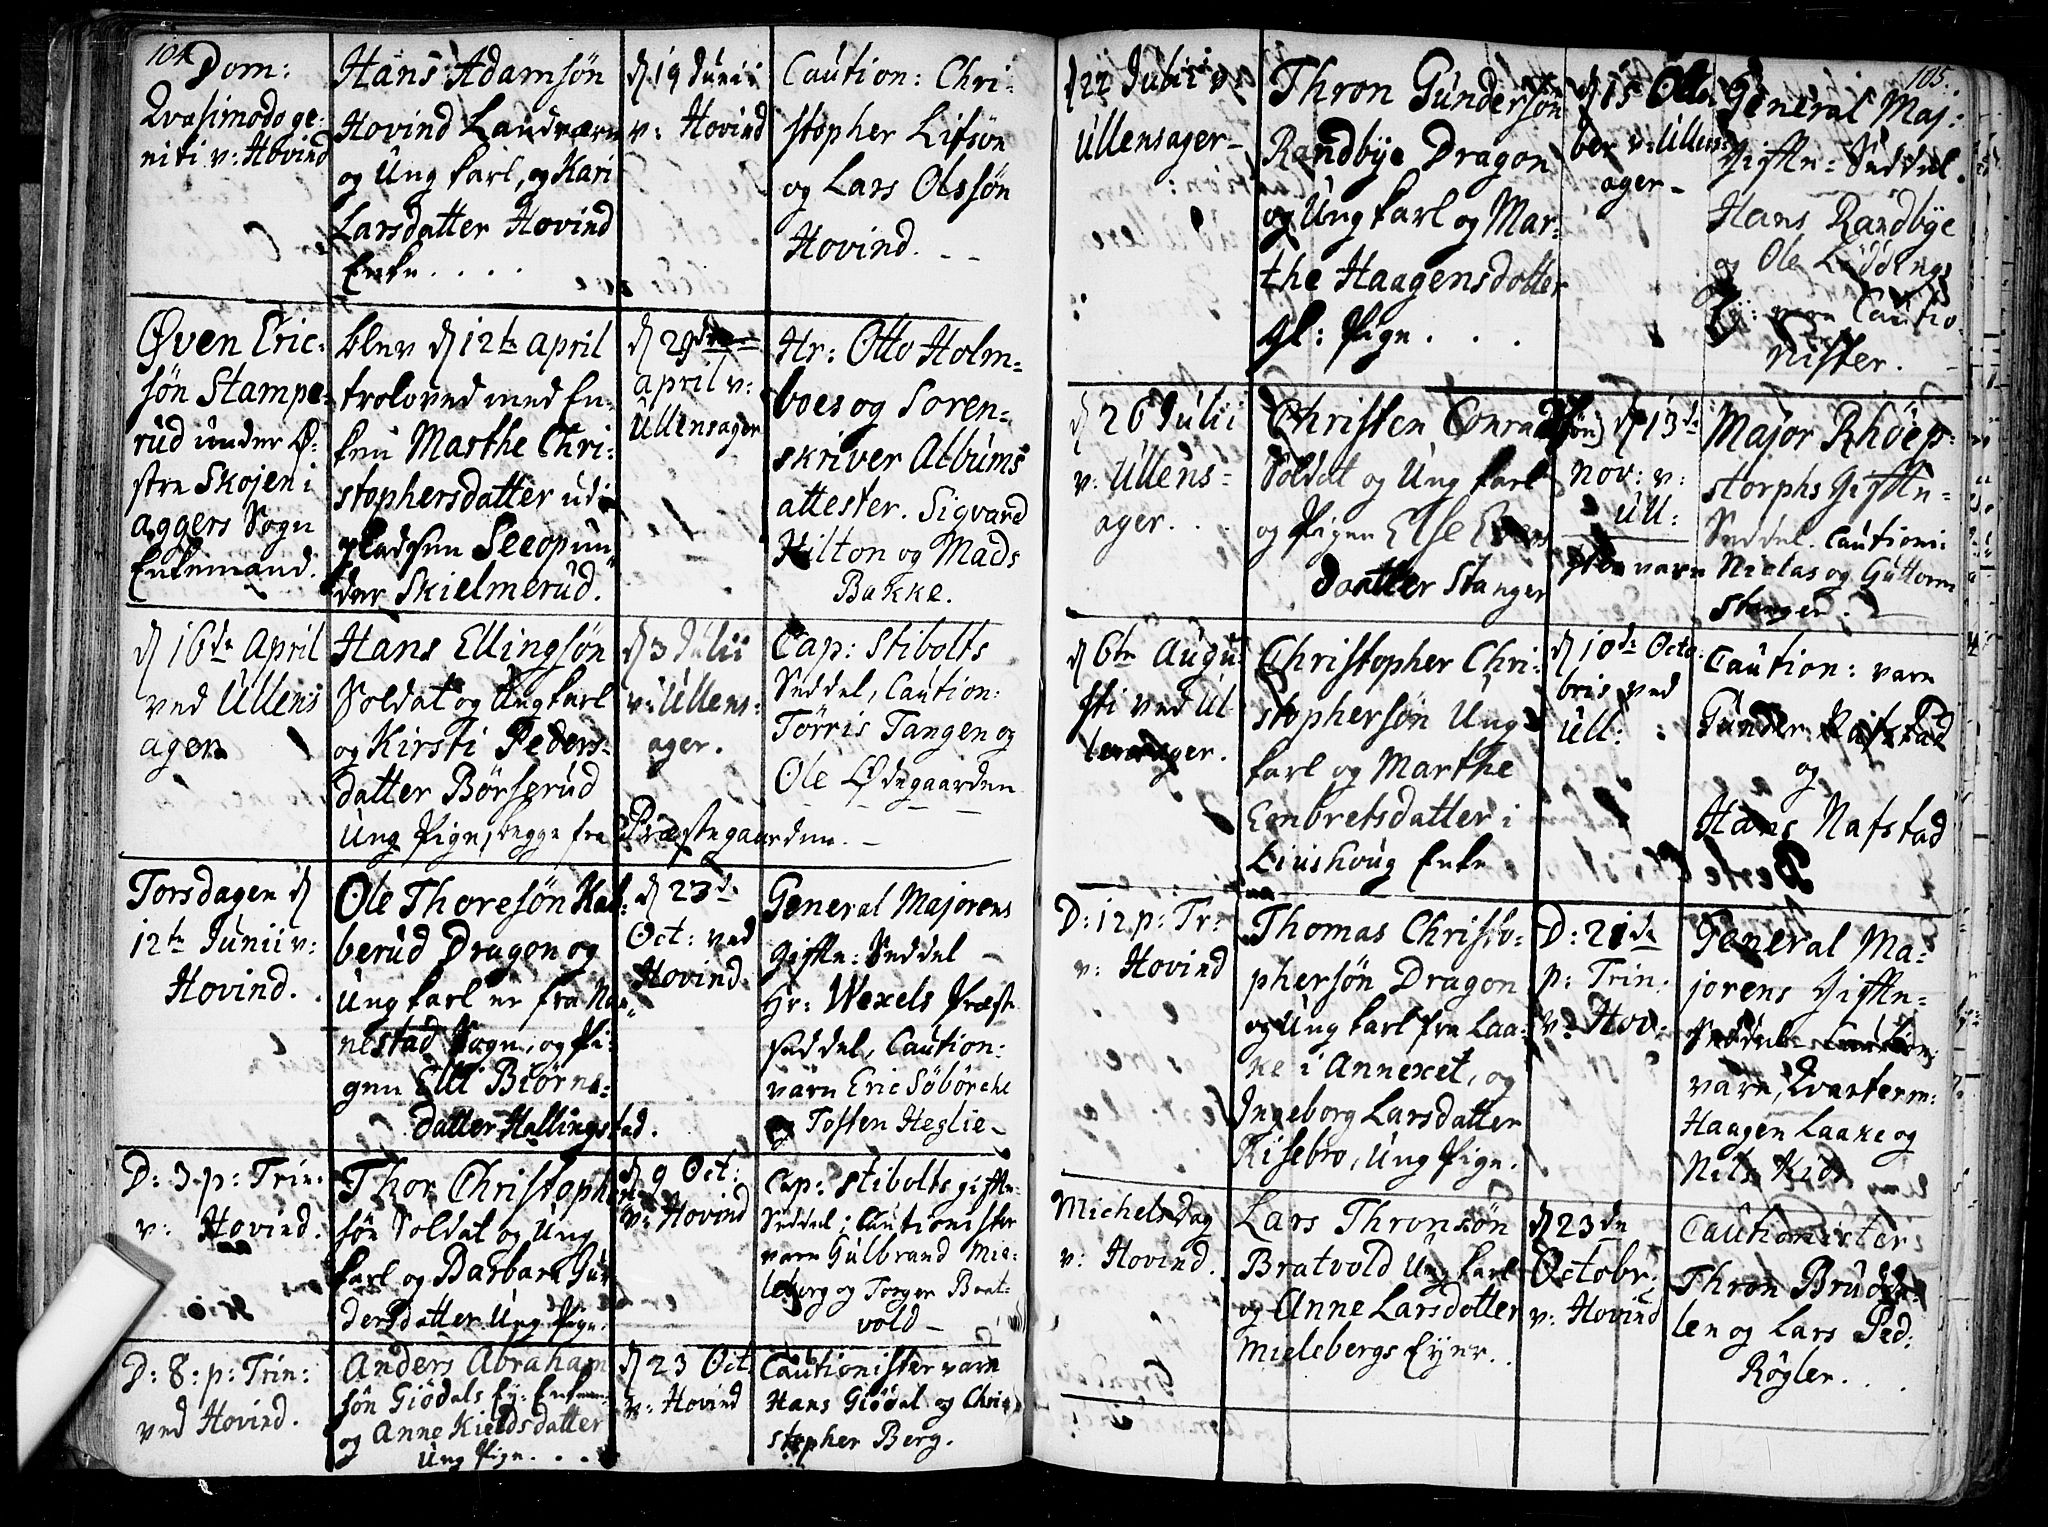 104.
Dom:
Qvasimodo ge:
niti v: Hovind
Hans Adamsøn
Hovind Landværn
og Ung karl, og Kari
Larsdatter Hovind
Enke....
d 19 Junii
v: Hovind
Caution: Chri-
stopher Lifsøn
og Lars Olssøn
Hovind. --
Øven Eric-
søn Stampe-
rud under Ø-
stre Skojen i
aggers Sogn
Enkemand.
blev d 12te April
troloved med En-
ken Marthe Chri-
stophersdatter udi
pladsen Seeop un-
der Skielmerud.
d 29de
april v:
Ullensager
Hr: Otto Holm-
boes og Soren-
skriver Albums
attester. Sigvard
Hilton og Mads
Bakke.
d 16de April
ved Ullens
ager
Hans Ellingsøn
Soldat og Ung karl
og Kirsti Peders-
datter Børserud
Ung Pige, begge fra Præstegaarden. -
d 3 Julii
v: Ullens-
ager.
Cap: Stibolts
Seddel, Caution:
Tørris Tangen og
Ole Ødegaarden
Torsdagen d
12te Junii v:
Hovind.
Ole Thoresøn Kal-
berud Dragon og
Ung karl er fra Nan-
nestad Sogn, og Pi-
gen Elli Biørns-
datter Hallingstad.
d 23de
Oct: ved
Hovind.
General Majorens
Gifte: Seddel -
Hr: Wexels Præste
seddel, Caution:
varn Eric Søbørche
og Tosten Heglie -
D: 3. p: Trin:
v: Hovind.
Thor Christopher
søn Soldat og Ung
karl og Barbara Gun
dersdatter Ung Pige.
d 9 Oct:
v: Hovind
Cap: Stibolts gifte-
Seddel; Cautionister
varn Gulbrand Mie-
leberg og Torger Brat-
vold -
D: 8: p: Trin:
ved Hovind.
Anders Abraham
søn Giødals Ey: Enkem:
og Anne Kieldsdatter
Ung Pige...
d 23 Oct
v: Hovind
Cautionister varn
Hans Giødal og Chri-
stopher Berg.
105.
d 22 Julii v:
Ullensager -
Thron Gundersøn
Randbye Dragon
og Ung karl og Mar-
the Haagensdatter
gl: Pige...
d 15 Octo
ber v: Ullens-
ager -
General Maj:
Gifte: Seddel.
Hans Randbye
og Ole Løddings
Ey: varn Cautio-
nister.
d 26 Julii
v: Ullens-
ager.
Christen Conradsøn
Soldat og Ung karl
og Pigen Else Evens
Daatter Stanger
d 13de
nov: v:
Ull:
Major Rhöep-
storphs Gifte-
Seddel. Cautioni:
varn Niclas og Guttorm
Stanger.
d 6te Augu-
sti ved Ul
lensager.
Christopher Chri-
stophersøn Ung
karl og Marthe
Embretsdatter i
Liushoug Enke
d 10de Octo-
bris ved
Ull:
Caution: varn
Gunder Nafstad
og
Hans Nafstad
D: 12 p: Tr:
v: Hovind
Thomas Christo-
phersøn Dragon
og Ung karl fra Laa-
ke i Annexet, og
Ingeborg Larsdatter
Risebro, Ung Pige.
D: 21de
p: Trin:
v: Hov:
General Ma-
jorens Gifte-
Seddel - Caution:
varn, Qvarterm:
Haagen Laake og
Nils
Michels Dag
v: Hovind.
Lars Thronsøn
Bratvold Ung karl
og Anne Larsdatter
Mielebergs Eyer..
d 23de
Octobr:
v: Hovind
Cautionister
Thron Brudda-
len og Lars Ped:
Røgler...